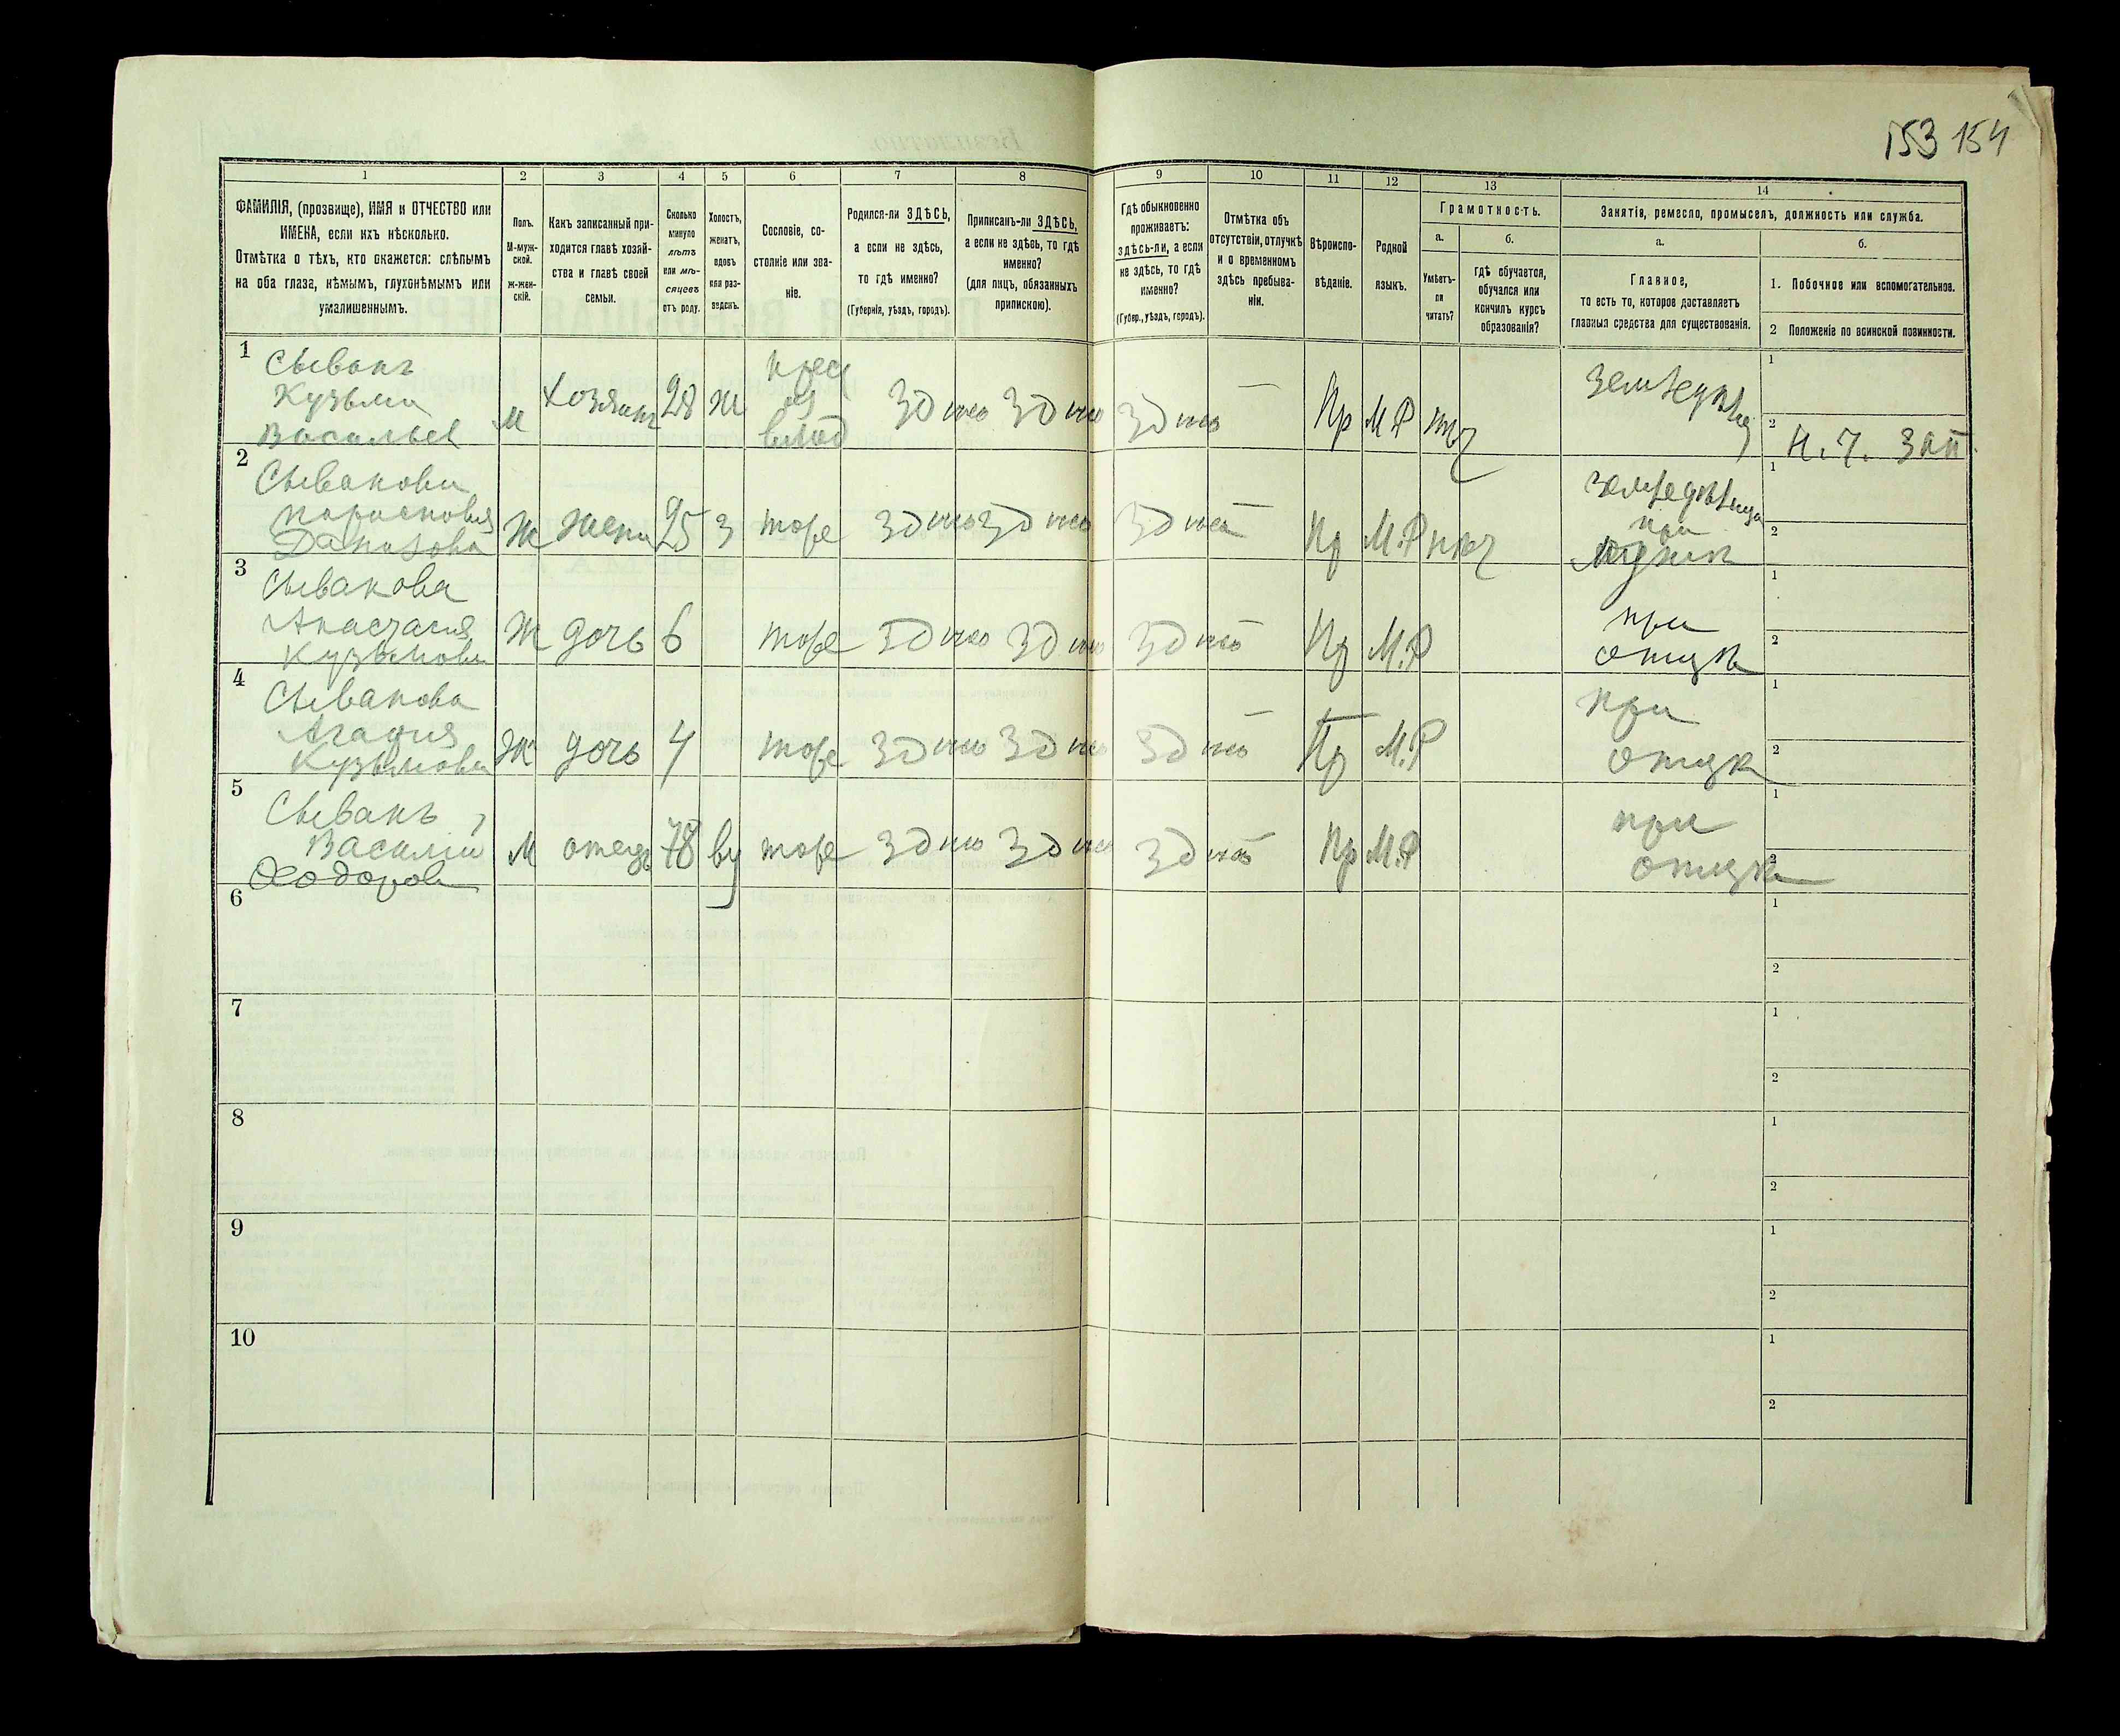 153 154
1 2 3 4 5 6 7 8 9 10 11 12 13 14
ФАМИЛІЯ, (прозвище), ИМЯ и ОТЧЕСТВО или
ИМЕНА, если ихъ нѣсколько.
Отмѣтка о тѣхъ, кто окажется: слѣпымъ
на оба глаза, нѣмымъ, глухонѣмымъ или
умалишеннымъ.
Полъ.
М-муж-
ской.
Ж-жен-
скій.
Какъ записанный при-
ходится главѣ хозяй-
ства и главѣ своей
семьи.
Сколько
минуло
лѣтъ
или мѣ-
сяцевъ
отъ роду.
Холостъ,
женатъ,
вдовъ
или раз-
веденъ.
Сословіе, со-
стояніе или зва-
ніе.
Родился-ли ЗДѢСЬ,
а если не здѣсь,
то гдѣ именно?
(Губернія, уѣздъ, городъ).
Приписанъ-ли ЗДѢСЬ,
а если не здѣсь, то гдѣ
именно?
(для лицъ, обязанныхъ
припискою).
Гдѣ обыкновенно
проживаетъ:
здѣсь-ли, а если
не здѣсь, то гдѣ
именно?
(Губер., уѣздъ, городъ).
Отмѣтка объ
отсутствіи, отлучкѣ
и о временномъ
здѣсь пребыва-
ніи.
Вѣроиспо-
вѣданіе.
Родной
языкъ.
Грамотность.
а.
Умѣетъ-
ли
читать?
б.
гдѣ обучается,
обучался или
кончилъ курсъ
образованія?
Занятія, ремесло, промыселъ, должность или служба.
а.
Главное,
то есть то, которое доставляетъ
главныя средства для существованія.
б.
1. Побочное или вспомогательное.
2 Положеніе по воинской повинности.
1 Сывакъ
Кузьма
Васильев
М Хозяинъ 28 ж
крес
из
влад
Пр М.Р
1
2
2 Сывакова
Парасковия
Данилова
Ж жена 25 з тоже
Пр М.Р
при
мужѣ
1
2
3 Сывакова
Анастасия
Кузьмова
Ж дочь 6 тоже
Пр М.Р
при
отцѣ
1
2
4 Сывакова
Агафия
Кузьмова
Ж дочь 4 тоже
Пр М.Р
при
отцѣ
1
2
5 Сывакъ
Василий
Ѳеодоров
М отецъ 78 ву тоже
Пр М.Р
при
отцѣ
1
2
6
1
2
7
1
2
8
1
2
9
1
2
10
1
2